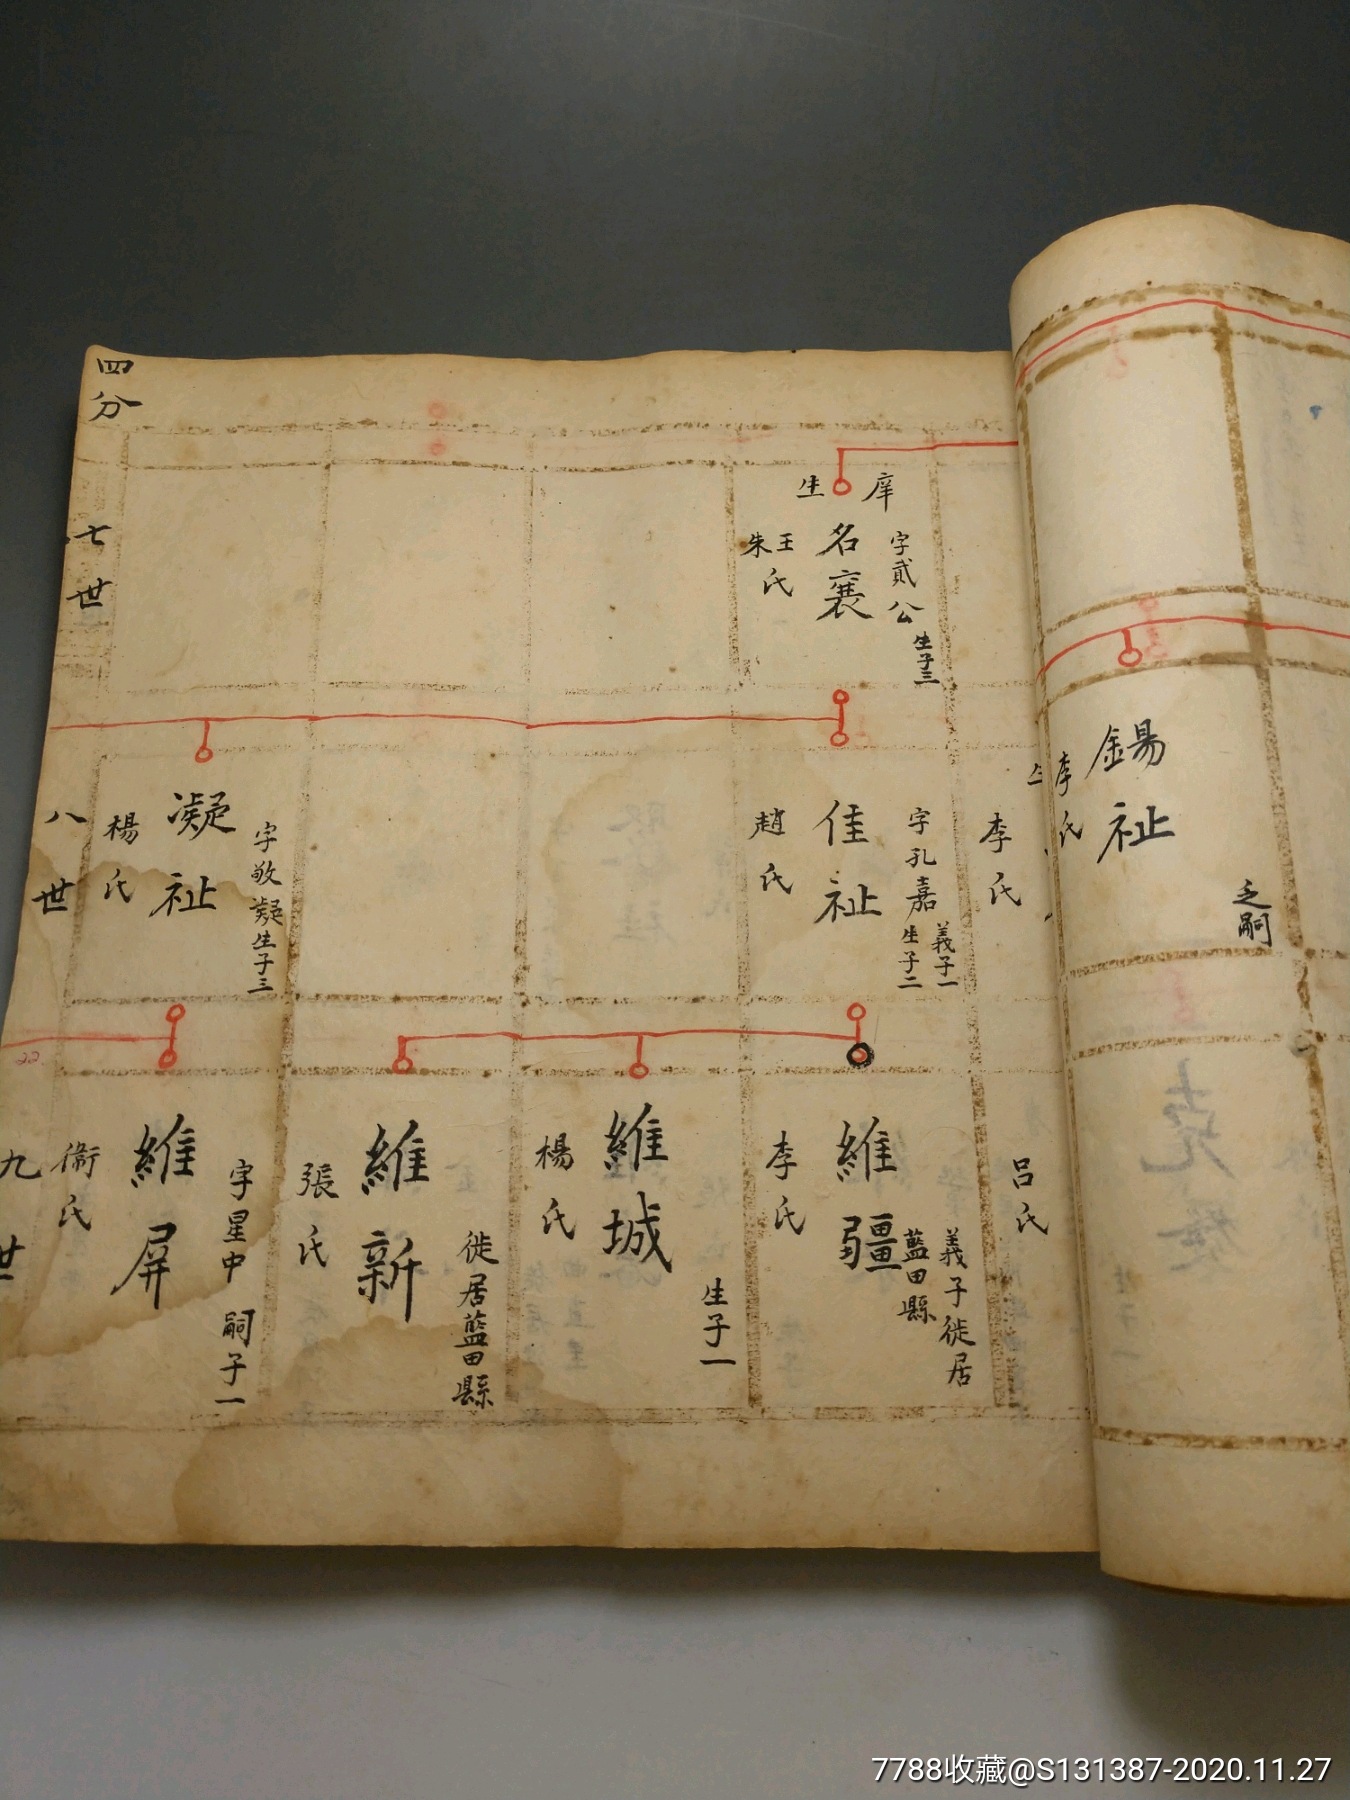 四分
七世
庠生
名襄
字貳公
生子三
王朱氏
八世
錫祉
李氏
乏嗣
李氏
佳祉
字孔嘉
義子一
生子二
趙氏
凝祉
字敬凝生子三
楊氏
九世
呂氏
維疆
義子徙居
藍田縣
李氏
維城
生子一
楊氏
維新
徙居藍田縣
張氏
維屏
字星中
嗣子一
衞氏
7788收藏@S131387-2020.11.27